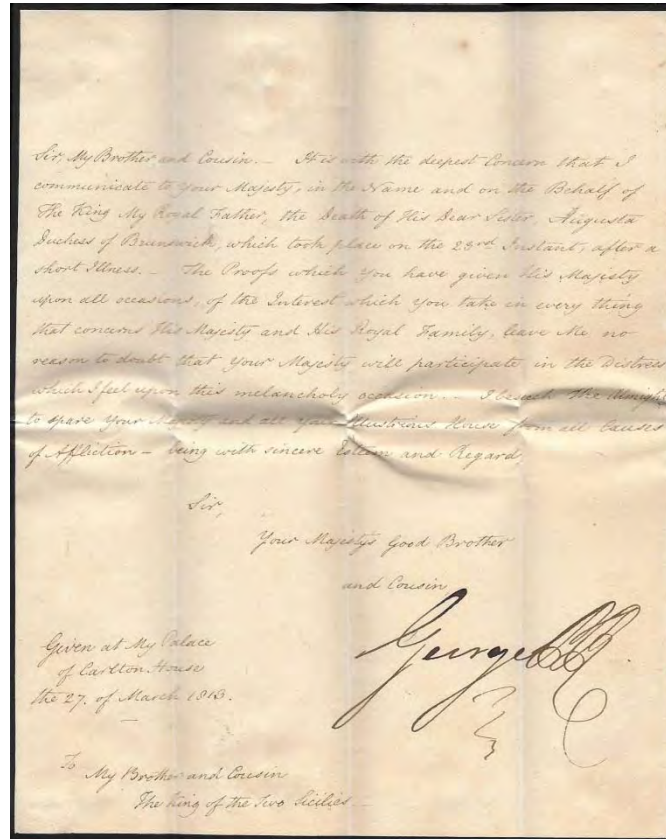 Sir, My Brother and Cousin. — It is with the deepest Concern that I
communicate to Your Majesty, in the Name and on the Behalf of
The King My Royal Father, the Death of His Dear Sister, Augusta
Duchess of Brunswick, which took place on the 23rd Instant, after a
short Illness. — The Proofs which You have given His Majesty
upon all occasions, of the Interest which You take in every thing
that concerns His Majesty and His Royal Family, leave Me no
reason to doubt that Your Majesty will participate in the Distress
which I feel upon this melancholy occasion. — I beseech the Almight
to spare Your Majesty and all Your Illustrious House from all Causes
of Affliction — being with sincere Esteem and Regard,
Sir,
Your Majesty's Good Brother
and Cousin
George PR
Given at My Palace
of Carlton House
the 27. of March 1813.
To My Brother and Cousin
The King of the Two Sicilies. —